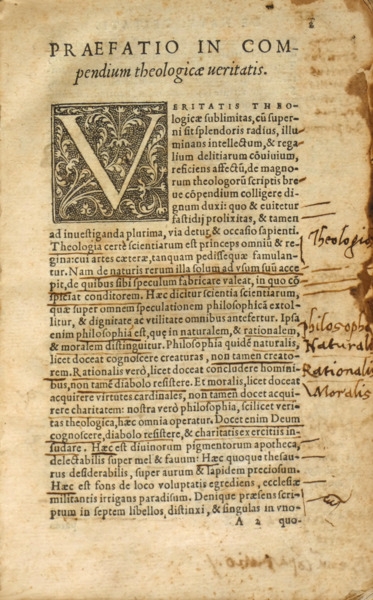 2
PRAEFATIO IN COM-
pendium theologicæ ueritatis.
VERITATIS THEO-
logicæ sublimitas, cũ super-
ni sit splendoris radius, illu
minans intellectum, & rega
lium delitiarum cõuiuium,
reficiens affectũ, de magno-
rum theologorũ scriptis bre
ue cõpendium colligere di-
gnum duxi: quo & euitetur
fastidij prolixitas, & tamen
ad inuestiganda plurima, via detur & occasio sapienti.
Theologia certè scientiarum est princeps omniũ & re-
gina: cui artes cæteræ, tanquam pedissequæ famulan-
tur. Nam de naturis rerum illa solum ad vsum suũ acce
pit, de quibus sibi speculum fabricare valeat, in quo cõ
spiciat conditorem. Hæc dicitur scientia scientiarum,
quæ super omnem speculationem philosophicã extol-
litur, & dignitate ac vtilitate omnibus antefertur. Ipsa
enim philosophia est, quę in naturalem, & rationalem,
& moralem distinguitur. Philosophia quidẽ naturalis,
licet doceat cognoscere creaturas, non tamen creato-
rem. Rationalis verò, licet doceat concludere homini-
bus, non tamẽ diabolo resistere. Et moralis, licet doceat
acquirere virtutes cardinales, non tamen docet acqui-
rere charitatem: nostra verò philosophia, scilicet veri-
tas theologica, hæc omnia operatur. Docet enim Deum
cognoscere, diabolo resistere, & charitatis exercitiis in-
sudare. Hæc est diuinorum pigmentorum apotheca,
delectabilis super mel & fauum: Hæc quoque thesau-
rus desiderabilis, super aurum & lapidem preciosum.
Hæc est fons de loco voluptatis egrediens, ecclesiæ
militantis irrigans paradisum. Denique præsens scri-
ptum in septem libellos distinxi, & singulas in vno-
A 2 quo-
Theologia
philosophia
Naturalis
Rationalis
Moralis